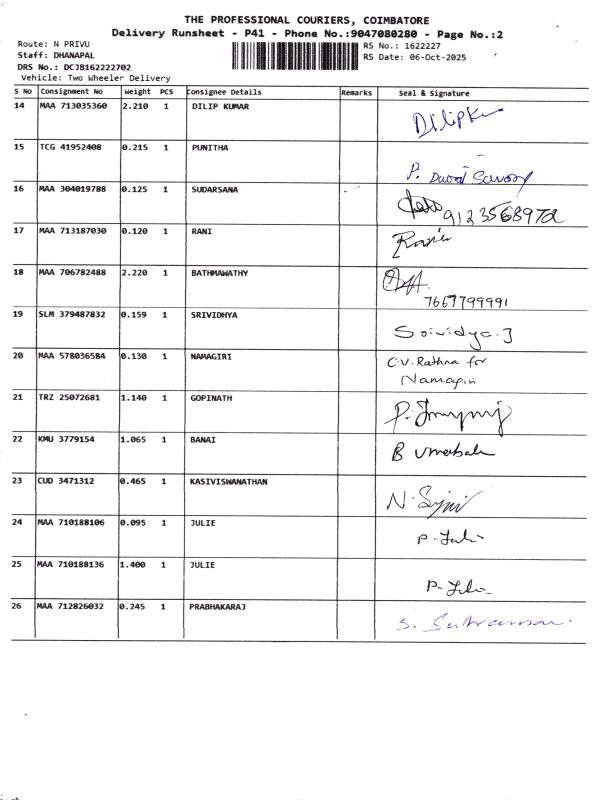 THE PROFESSIONAL COURIERS, COIMBATORE
Delivery Runsheet - P41 - Phone No.:9047080280 - Page No.:2
Route: N PRIVU RS No.: 1622227
Staff: DHANAPAL RS Date: 06-Oct-2025
DRS No.: DCJB162222702
Vehicle: Two Wheeler Delivery
S No Consignment No Weight PCS Consignee Details Remarks Seal & Signature
14 MAA 713035360 2.210 1 DILIP KUMAR
15 TCG 41952408 0.215 1 PUNITHA
P.
16 MAA 304019788 0.125 1 SUDARSANA
17 MAA 713187030 0.120 1 RANI
18 MAA 706782488 2.220 1 BATHMAWATHY
7667799991
19 SLM 379487832 0.159 1 SRIVIDHYA
20 MAA 578036584 0.130 1 NAMAGIRI C.V. Rathna for
Namagiri
21 TRZ 25072681 1.140 1 GOPINATH
22 KMU 3779154 1.065 1 BANAI B
23 CUD 3471312 0.465 1 KASIVISWANATHAN
N.
24 MAA 710188106 0.095 1 JULIE
25 MAA 710188136 1.400 1 JULIE
26 MAA 712826032 0.245 1 PRABHAKARAJ
S.